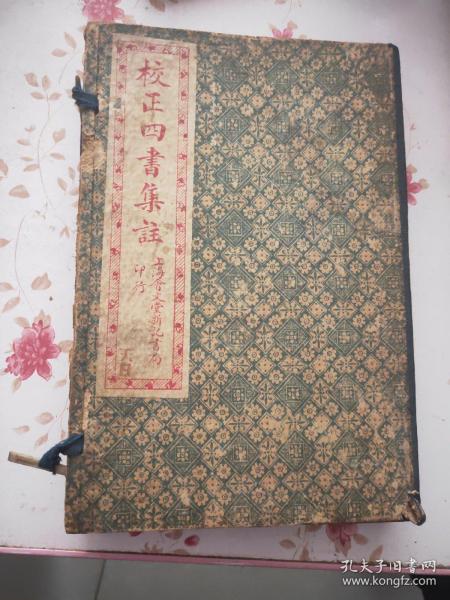 校正四書集註
上海會文堂新記書局
印行
孔夫子旧书网
www.kongfz.com